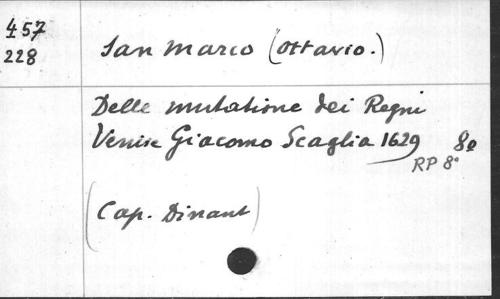 457
228
San Marco (Ottavio.)
Delle mutatione dei Regni
Venise Giacomo Scaglia 1629 8º
RP 8º
(Cap. Dinant)